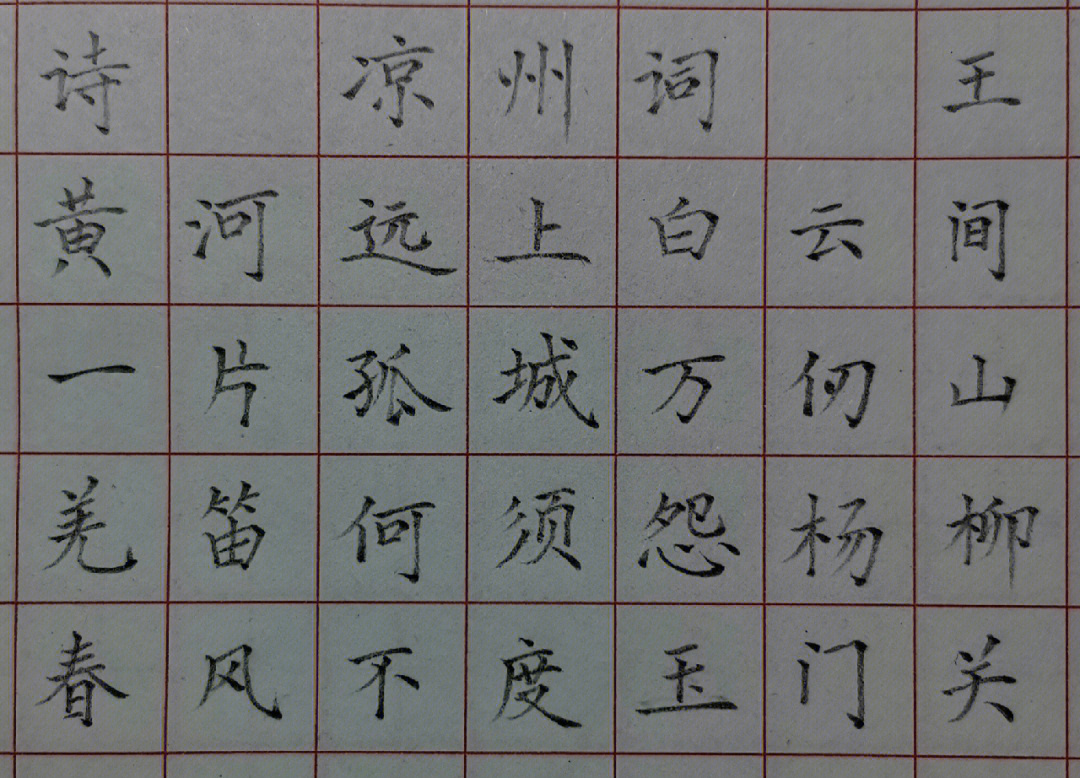 诗 凉州词 王
黄河远上白云间
一片孤城万仞山
羌笛何须怨杨柳
春风不度玉门关